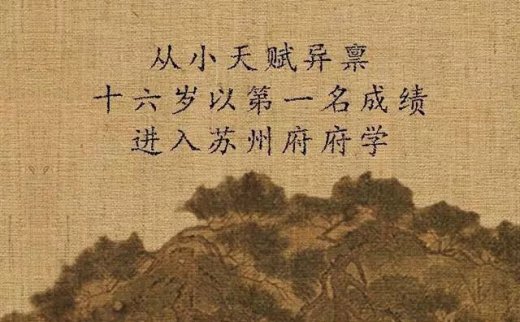 从小天赋异禀
十六岁以第一名成绩
进入苏州府府学